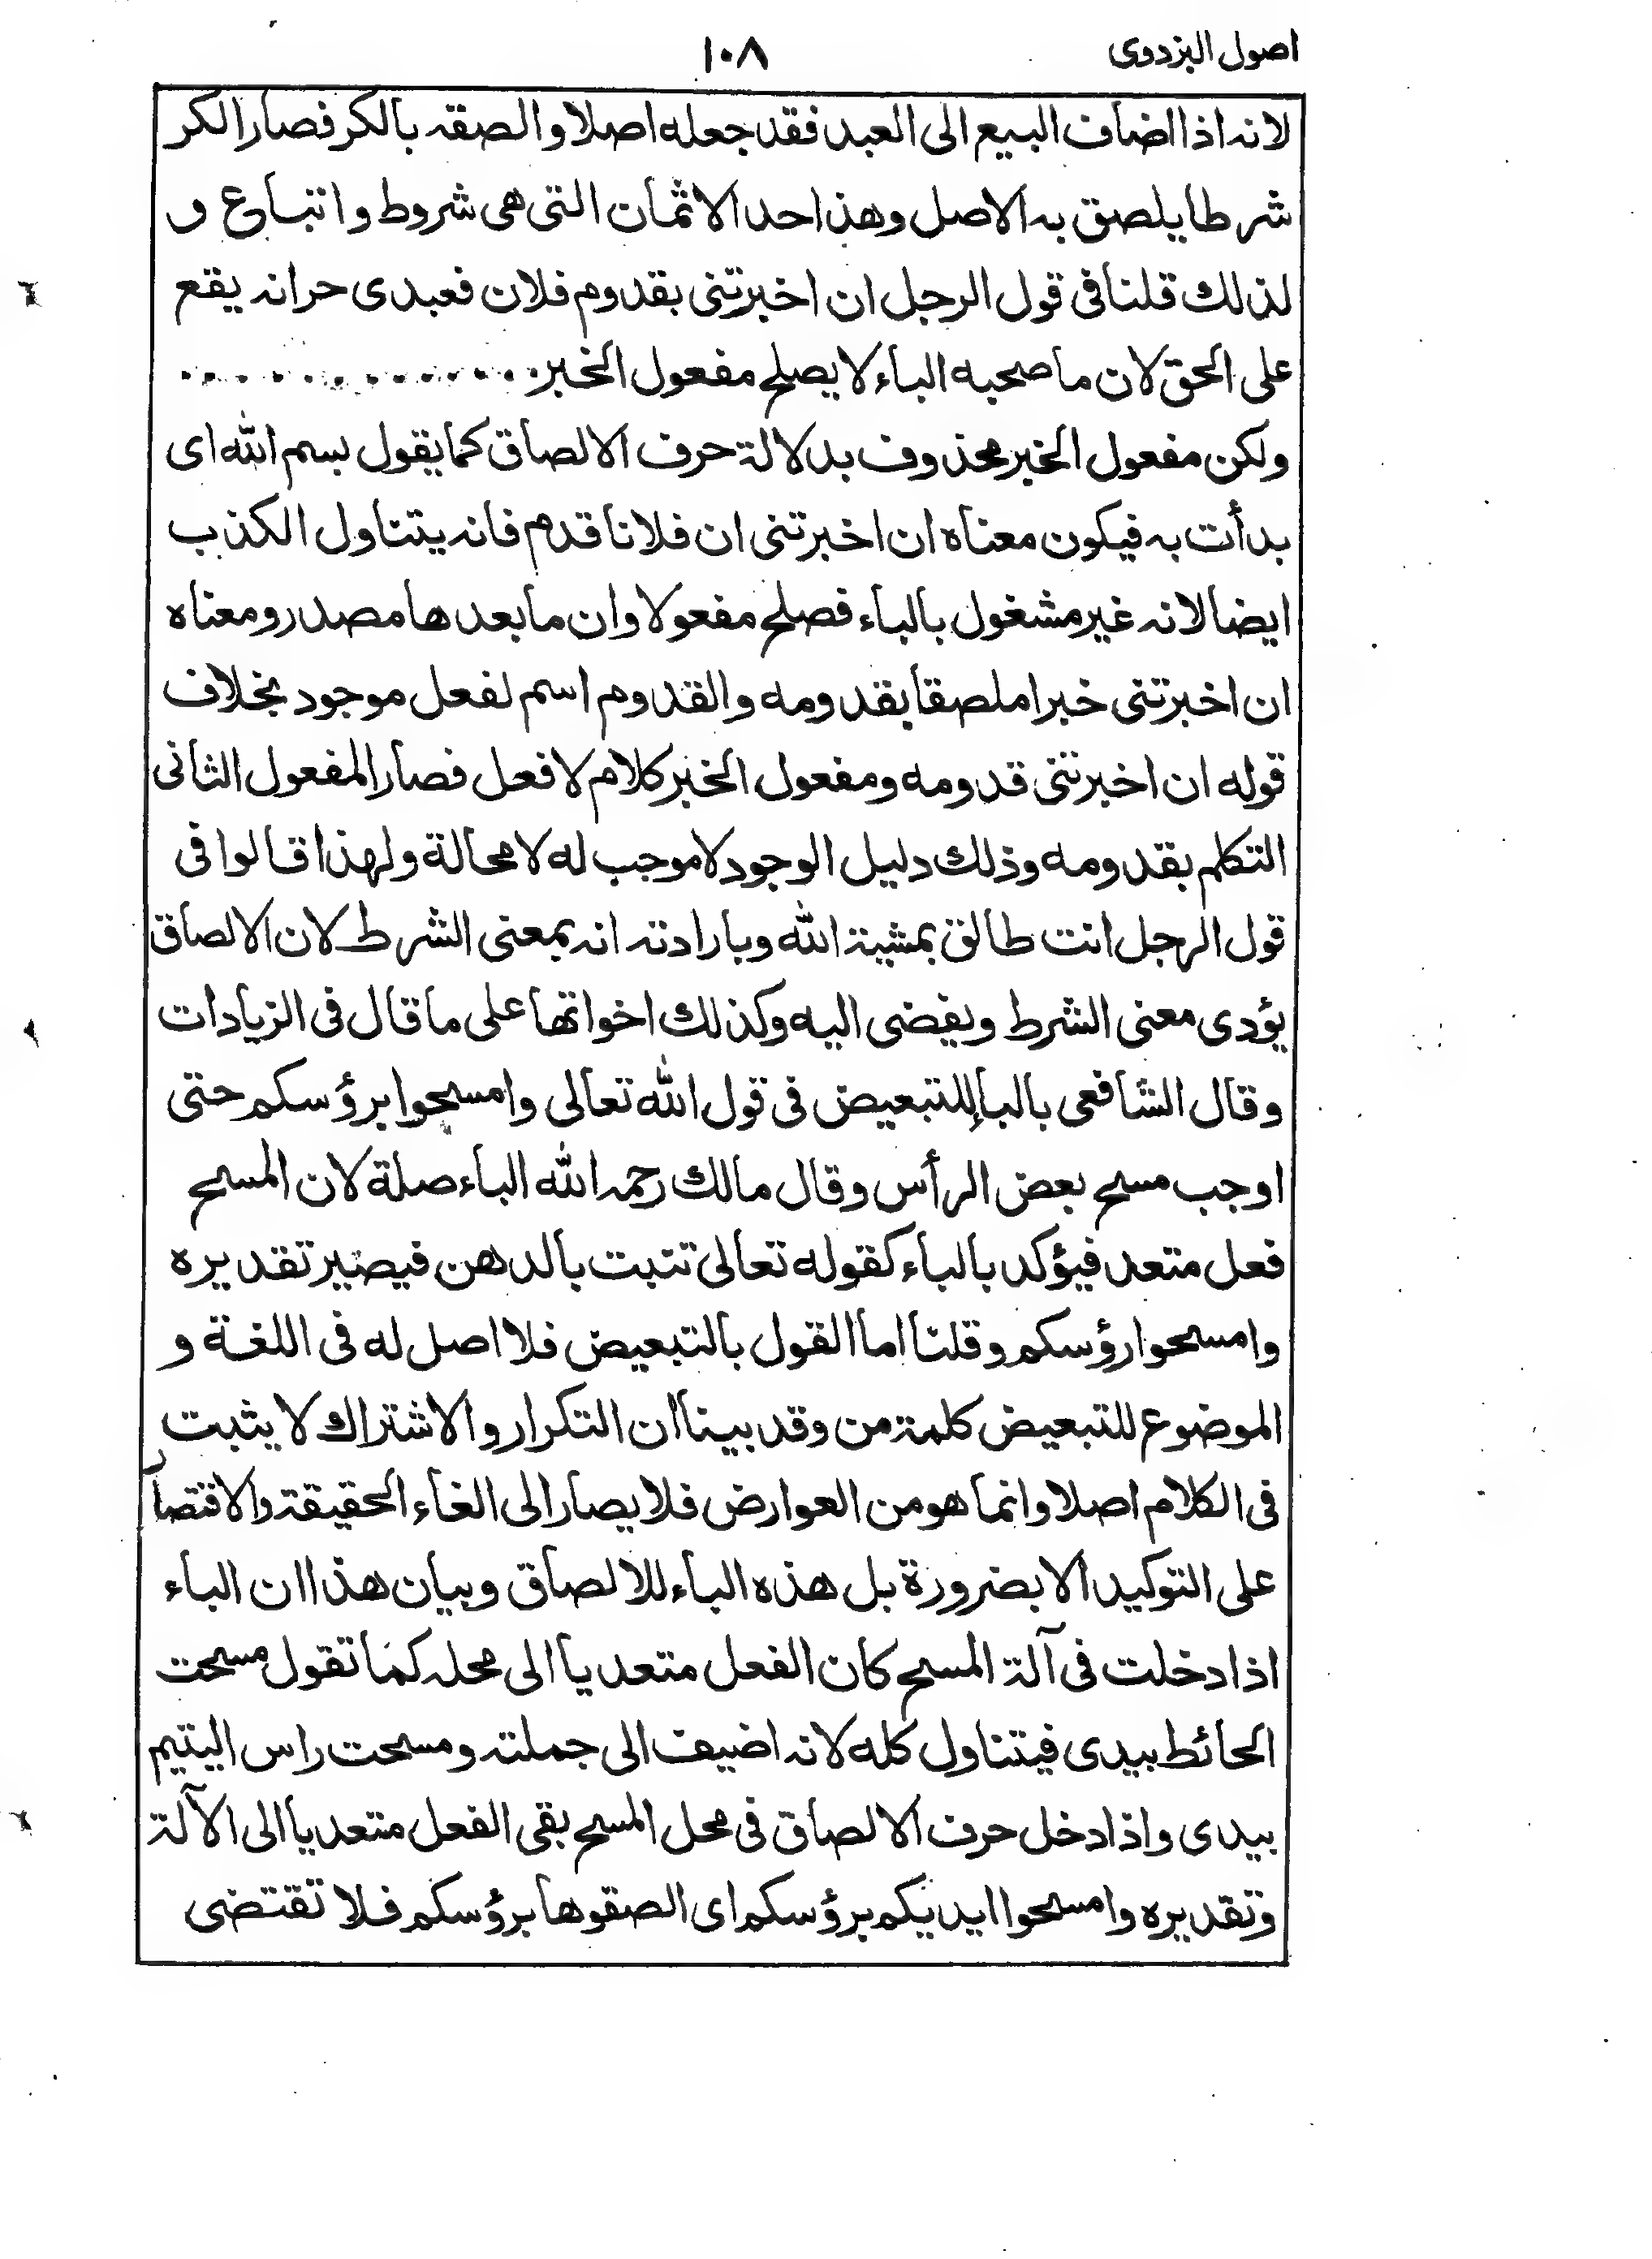 اصول البزدوى
١٠٨
لانه اذا اضاف البيع الى العبد فقد جعله اصلا و الصقه بالكر فصار الكر
شرطا يلصق به الاصل وهذا حد الاثمان التى هى شروط و اتباع و
لذلك قلنا فى قول الرجل ان اخبرتنى بقدوم فلان فعبدى حر انه يقع
على الحق لان ما صحبه الباء لا يصلح مفعول الخبر . . . . . . . . . . . .
ولكن مفعول الخبر محذوف بدلالة حرف الالصاق كما يقول بسم الله اى
بدأت به فيكون معناه ان اخبرتنى ان فلانا قدم فانه يتناول الكذب
ايضا لانه غير مشغول بالباء فصلح مفعولا وان ما بعدها مصدر ومعناه
ان اخبرتنى خبرا ملصقا بقدومه والقدوم اسم لفعل موجود بخلاف
قوله ان اخبرتنى قدومه ومفعول الخبر كلام لا فعل فصار المفعول الثانى
التكلم بقدومه وذلك دليل الوجود لا موجب له لا محالة ولهذا قالوا فى
قول الرجل انت طالق بمشية الله وبارادته انه بمعنى الشرط لان الالصاق
يؤدى معنى الشرط ويفضى اليه وكذلك اخواتها على ما قال فى الزيادات
وقال الشافعى بالباء للتبعيض فى قول الله تعالى وامسحوا برؤسكم حتى
اوجب مسح بعض الرأس وقال مالك رحمه الله الباء صلة لان المسح
فعل متعد فيؤكد بالباء كقوله تعالى تنبت بالدهن فيصير تقديره
وامسحوا رؤسكم وقلنا اما القول بالتبعيض فلا اصل له فى اللغة و
الموضوع للتبعيض كلمة من وقد بينا ان التكرار والاشتراك لا يثبت
فى الكلام اصلا وانما هو من العوارض فلا يصار الى الغاء الحقيقة والاقتصار
على التوكيد الا بضرورة بل هذه الباء للالصاق وبيان هذا ان الباء
اذا دخلت فى آلة المسح كان الفعل متعديا الى محله كما تقول مسحت
الحائط بيدى فيتناول كله لانه اضيف الى جملته ومسحت راس اليتيم
بيدى واذا دخل حرف الالصاق فى محل المسح بقى الفعل متعديا الى الآلة
وتقديره وامسحوا ايديكم برؤسكم اى الصقوها برؤسكم فلا تقتضى